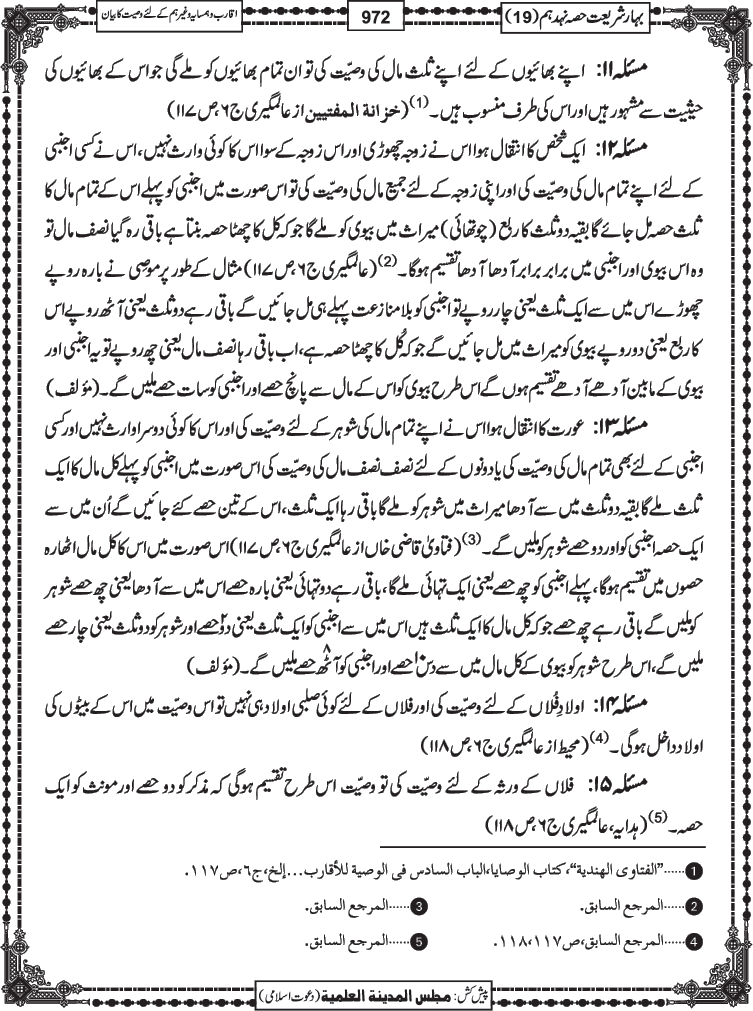 بہارِ شریعت حصہ نہدہم (19)
972
اقارب و ہمسایہ وغیرہم کے لئے وصیت کا بیان
مسئلہ ۱۱: اپنے بھائیوں کے لئے اپنے ثلث مال کی وصیّت کی تو ان تمام بھائیوں کو ملے گی جو اس کے بھائیوں کی
حیثیت سے مشہور ہیں اور اس کی طرف منسوب ہیں۔(1) (خزانة المفتیین از عالمگیری ج۶، ص۱۱۷)
مسئلہ ۱۲: ایک شخص کا انتقال ہوا اس نے زوجہ چھوڑی اور اس زوجہ کے سوا اس کا کوئی وارث نہیں، اس نے کسی اجنبی
کے لئے اپنے تمام مال کی وصیّت کی اور اپنی زوجہ کے لئے جمیع مال کی وصیّت کی تو اس صورت میں اجنبی کو پہلے اس کے تمام مال کا
ثلث حصہ مل جائے گا بقیہ دو ثلث کا ربع (چوتھائی) میراث میں بیوی کو ملے گا جو کہ کل کا چھٹا حصہ بنتا ہے باقی رہ گیا نصف مال تو
وہ اس بیوی اور اجنبی میں برابر برابر آدھا آدھا تقسیم ہوگا۔(2) (عالمگیری ج۶، ص۱۱۷) مثال کے طور پر موصِی نے بارہ روپے
چھوڑے اس میں سے ایک ثلث یعنی چار روپے تو اجنبی کو بلا منازعت پہلے ہی مل جائیں گے باقی رہے دو ثلث یعنی آٹھ روپے اس
کا ربع یعنی دو روپے بیوی کو میراث میں مل جائیں گے جو کہ کُل کا چھٹا حصہ ہے، اب باقی رہا نصف مال یعنی چھ روپے تو یہ اجنبی اور
بیوی کے مابین آدھے آدھے تقسیم ہوں گے اس طرح بیوی کو اس کے مال سے پانچ حصے اور اجنبی کو سات حصے ملیں گے۔ (مؤلف)
مسئلہ ۱۳: عورت کا انتقال ہوا اس نے اپنے تمام مال کی شوہر کے لئے وصیّت کی اور اس کا کوئی دوسرا وارث نہیں اور کسی
اجنبی کے لئے بھی تمام مال کی وصیّت کی یا دونوں کے لئے نصف نصف مال کی وصیّت کی اس صورت میں اجنبی کو پہلے کل مال کا ایک
ثلث ملے گا بقیہ دو ثلث میں سے آدھا میراث میں شوہر کو ملے گا باقی رہا ایک ثلث، اس کے تین حصے کئے جائیں گے اُن میں سے
ایک حصہ اجنبی کو اور دو حصے شوہر کو ملیں گے۔(3) (فتاویٰ قاضی خاں از عالمگیری ج۶، ص۱۱۷) اس صورت میں اس کا کل مال اٹھارہ
حصوں میں تقسیم ہوگا، پہلے اجنبی کو چھ حصے یعنی ایک تہائی ملے گا، باقی رہے دو تہائی یعنی بارہ حصے اس میں سے آدھا یعنی چھ حصے شوہر
کو ملیں گے باقی رہے چھ حصے جو کہ کل مال کا ایک ثلث ہیں اس میں سے اجنبی کو ایک ثلث یعنی دو۲ حصے اور شوہر کو دو ثلث یعنی چار حصے
ملیں گے، اس طرح شوہر کو بیوی کے کل مال میں سے دس۱۰ حصے اور اجنبی کو آٹھ۸ حصے ملیں گے۔ (مؤلف)
مسئلہ ۱۴: اولادِ فُلاں کے لئے وصیّت کی اور فلاں کے لئے کوئی صلبی اولاد ہی نہیں تو اس وصیّت میں اس کے بیٹوں کی
اولاد داخل ہوگی۔(4) (محیط از عالمگیری ج۶، ص۱۱۸)
مسئلہ ۱۵: فلاں کے ورثہ کے لئے وصیّت کی تو وصیّت اس طرح تقسیم ہوگی کہ مذکر کو دو حصے اور مونث کو ایک
حصہ۔(5) (ہدایہ، عالمگیری ج۶، ص۱۱۸)
1 ......"الفتاوی الهندية"، کتاب الوصایا، الباب السادس فی الوصیة للأقارب...إلخ، ج٦، ص١١٧.
2 ......المرجع السابق. 3 ......المرجع السابق.
4 ......المرجع السابق، ص١١٧، ١١٨. 5 ......المرجع السابق.
پیش کش: مجلس المدینة العلمیة (دعوت اسلامی)